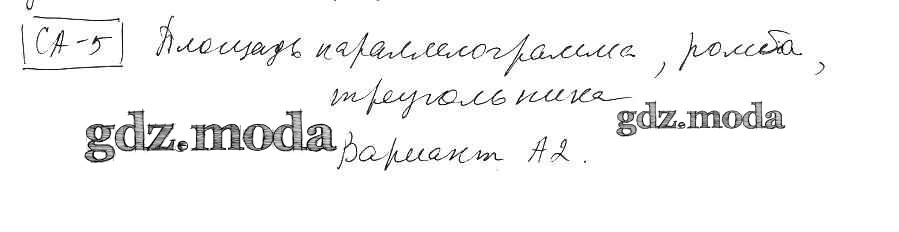 СА-5 Площадь параллелограмма, ромба,
треугольника
gdz.moda gdz.moda
Вариант А2.